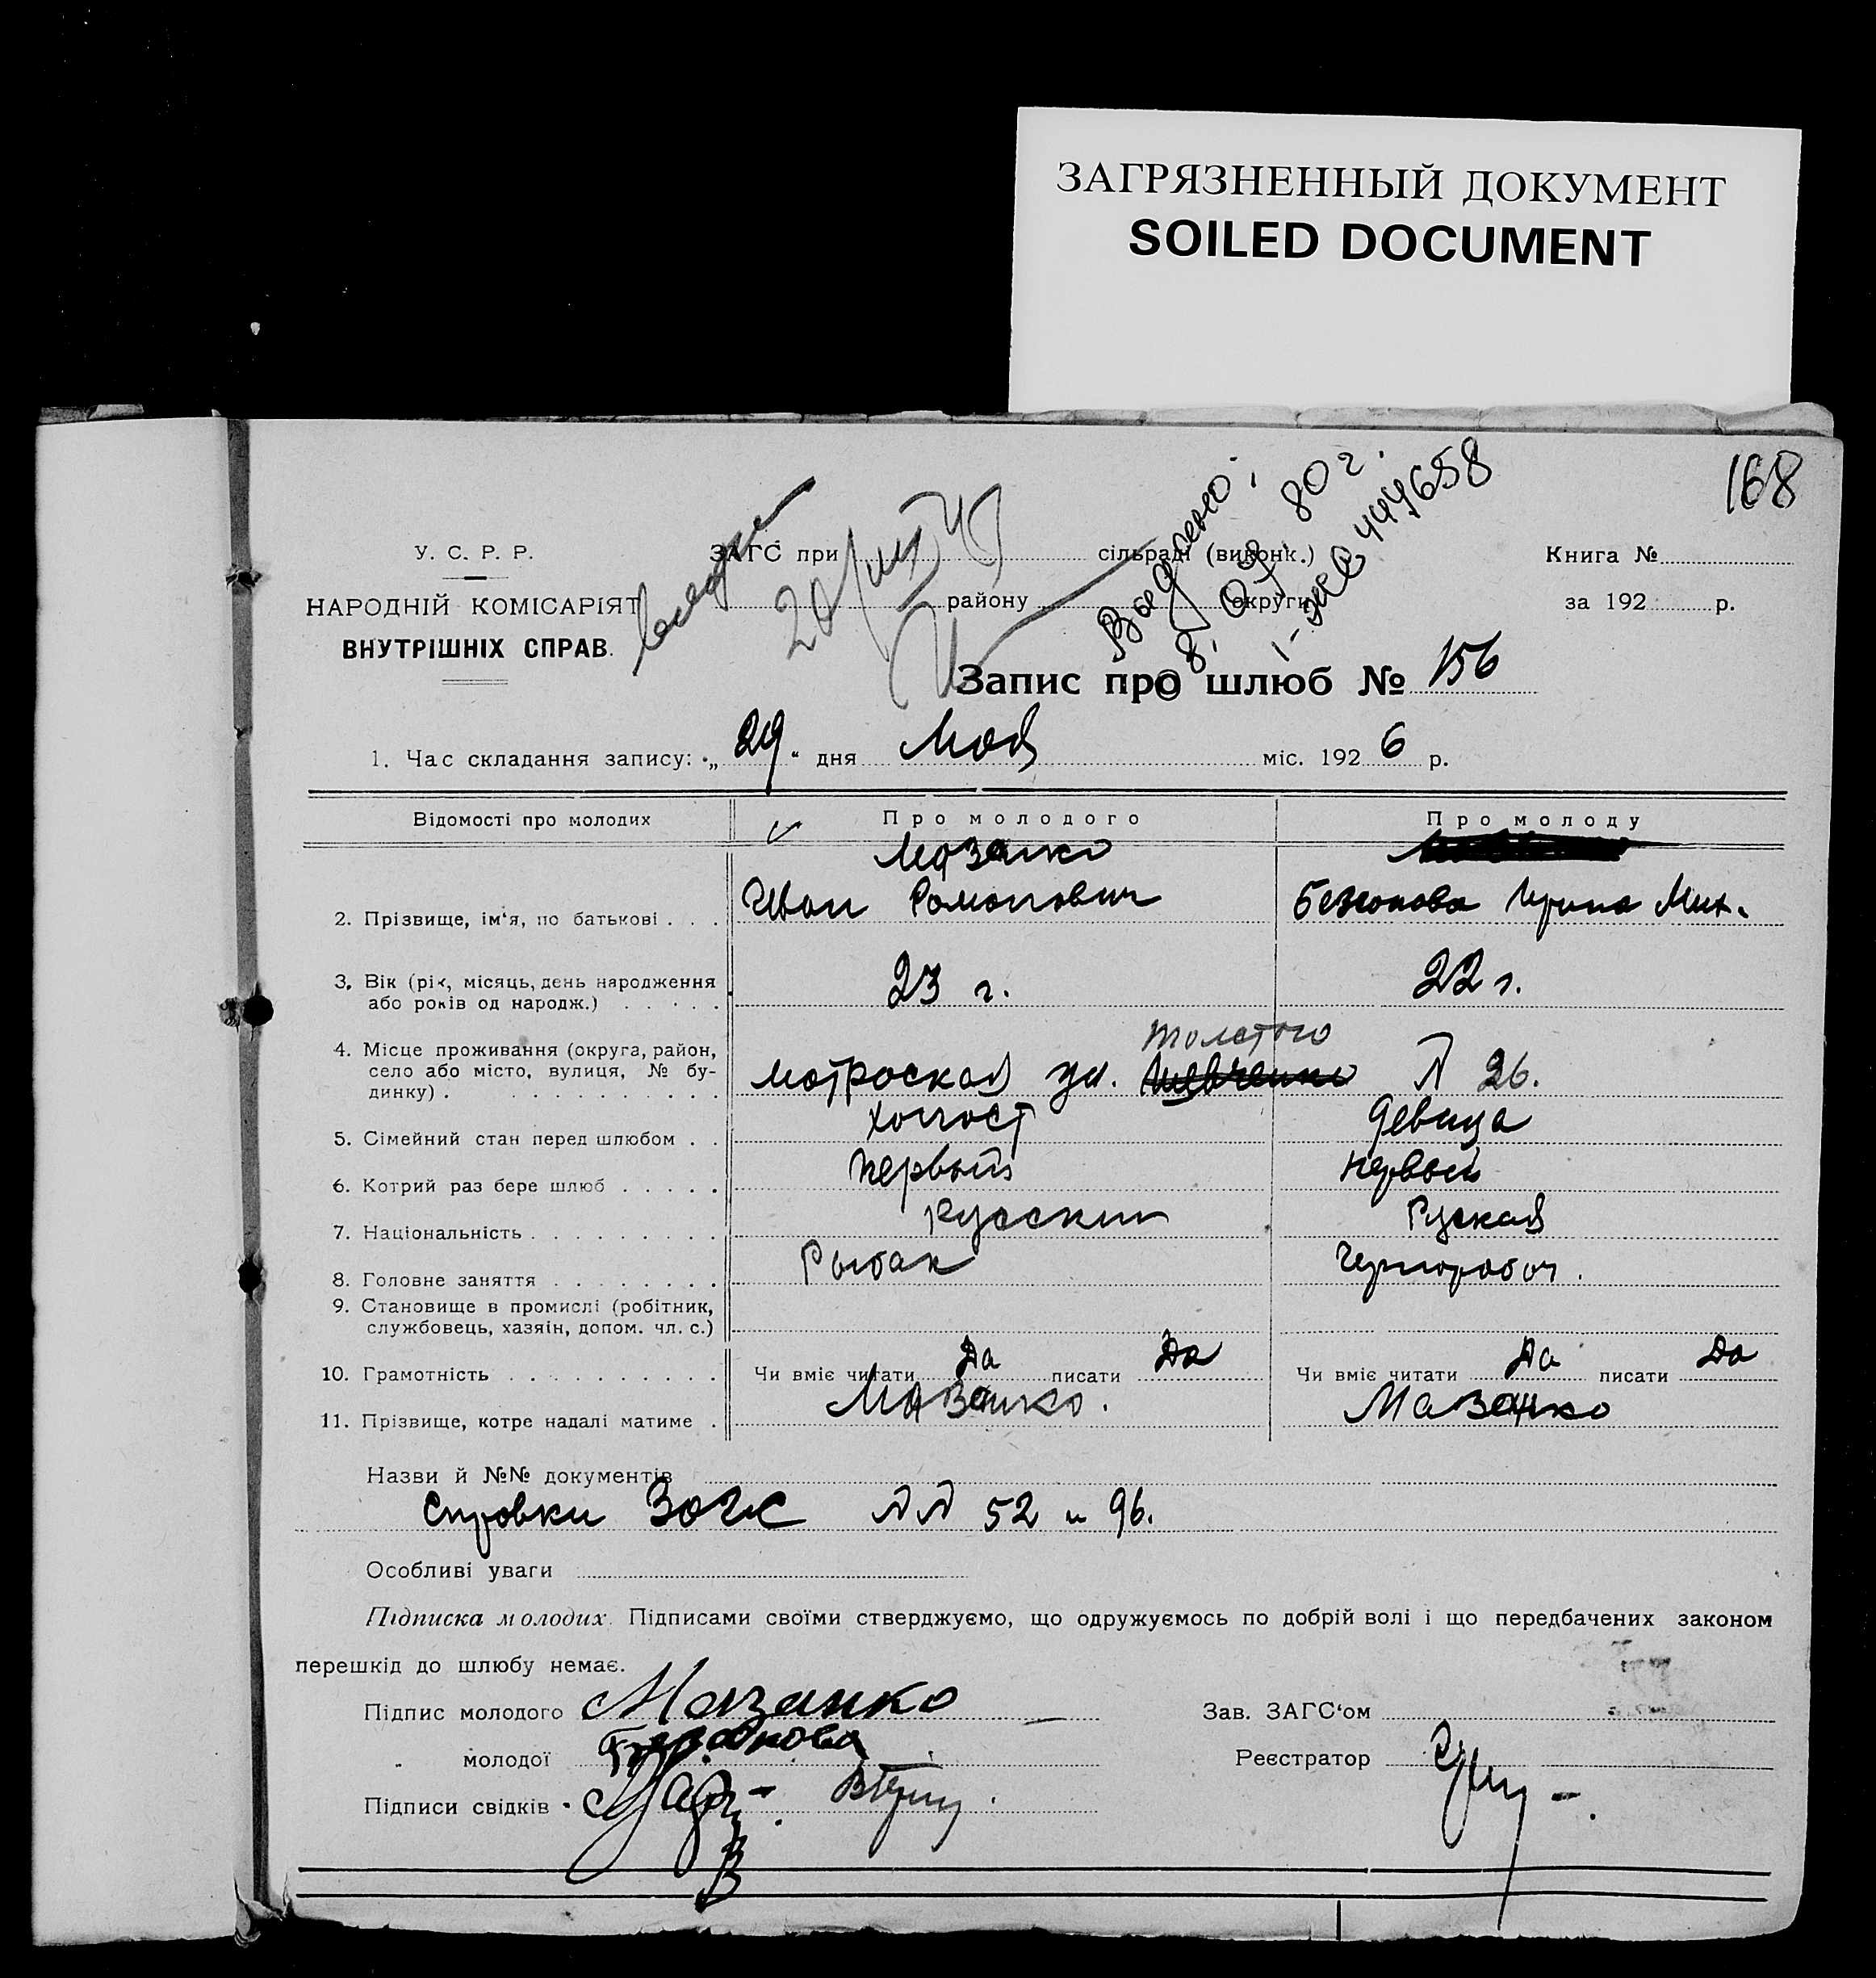 ЗАГРЯЗНЕННЫЙ ДОКУМЕНТ
SOILED DOCUMENT
168
У. С. Р. Р.
НАРОДНІЙ КОМІСАРІЯТ
ВНУТРІШНІХ СПРАВ.
ЗАГС при сільраді (виконк.)
району округи
Книга №
за 192 р.
8. 09. 80 г.
444658
Запис про шлюб № 156
1. Час складання запису: „29“ дня Мая міс. 1926 р.
Відомості про молодих Про молодого Про молоду
Мазанко
2. Прізвище, ім'я, по батькові . . . Иван Романович Ирина Мих.
3. Вік (рік, місяць, день народження або років од народж.) 23 г. 22 г.
Толстого
4. Місце проживання (округа, район, село або місто, вулиця, № будинку) . Матроская ул. Шевченко № 26.
5. Сімейний стан перед шлюбом . . холост девица
6. Котрий раз бере шлюб . . . . . первый первый
7. Національність . . . . . . . . . русский Руская
8. Головне заняття . . . . . . . . Рыбак Чернорабоч.
9. Становище в промислі (робітник, службовець, хазяїн, допом. чл. с.)
10. Грамотність . . . . . . . . . . Чи вміє читати Да писати Да Чи вміє читати Да писати Да
11. Прізвище, котре надалі матиме . Мазанко. Мазанко
Назви й №№ документів
Справки Загс №№ 52 и 96.
Особливі уваги
Підписка молодих. Підписами своїми стверджуємо, що одружуємось по добрій волі і що передбачених законом
перешкід до шлюбу немає.
Підпис молодого Мазанко Зав. ЗАГС'ом
„ молодої Реєстратор
Підписи свідків